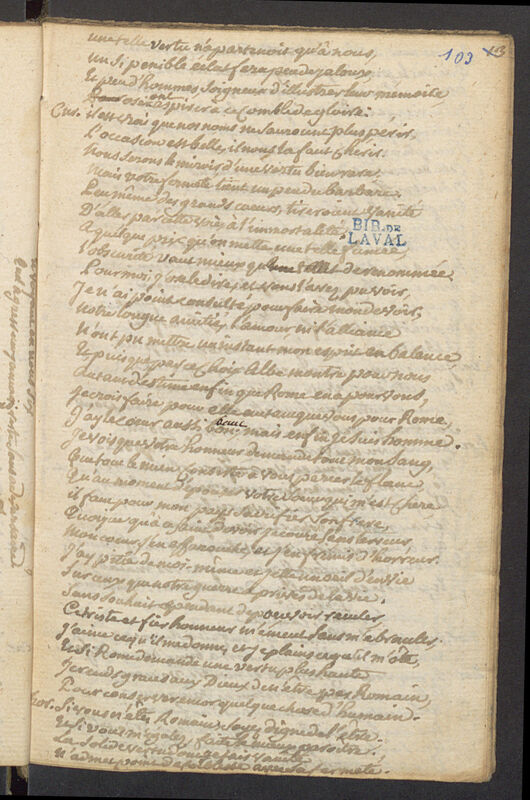 103 113
une telle vertu n'apartenoit qu'à nous,
un si penible eclat fera peu de jaloux,
et peu d'hommes soigneux d'illustrer leur memoire
oseront aspirer à ce comble de gloire.
Cur. il est vrai que nos noms ne sauroient plus perir,
L'occasion est belle, il nous la faut cherir.
Nous serons le miroir d'une vertu bien rare;
Mais votre fermeté tient un peu du barbare.
Peu même des grands coeurs, tireroient vanité
D'aller par cette voie à l'immortalité.
A quelque prix qu'on mette une telle fumée
L'obscurité vaut mieux que de renommée.
Pour moi, j'ose le dire, et vous l'avez pu voir,
Je n'ai point consulté pour faire mon devoir,
Notre longue amitié, l'amour ni l'alliance
N'ont pu mettre un instant mon esprit en balance,
Et puisque par ce choix Albe montre pour nous
Autant d'estime enfin que Rome en a pour vous,
Je crois faire pour elle autant que vous pour Rome,
J'ay le coeur aussi bon: mais enfin je suis homme.
Je vois que votre honneur demande tout mon sang,
Que tout le mien consiste à vous percer le flanc
Qu'au moment d'épouser votre soeur qui m'est chere
il faut pour mon pays sacrifier son frere,
Quoique à ce devoir je coure sans terreur
Mon coeur s'en effarouche, et j'en frémis d'horreur.
J'ay pitié de moi-même et jette un oeil d'envie
Sur ceux que notre guerre a privez de la vie.
Sans souhait cependant de pouvoir reculer,
Ce triste et fier honneur m'émeut sans m'ebranler.
J'aime ce qu'il me donne, et je plains ce qu'il m'ôte,
Et si Rome demande une vertu plus haute
Je rends graces aux Dieux de n'être pas Romain,
Pour conserver encor quelque chose d'humain.
hor. Si vous n'êtes Romain, soyez digne de l'être.
Et si vous m'egalez, faites le mieux paroitre.
La solide vertu dont je fais vanité
N'admet point de foiblesse avec sa fermeté.
BIB. DE
LAVAL